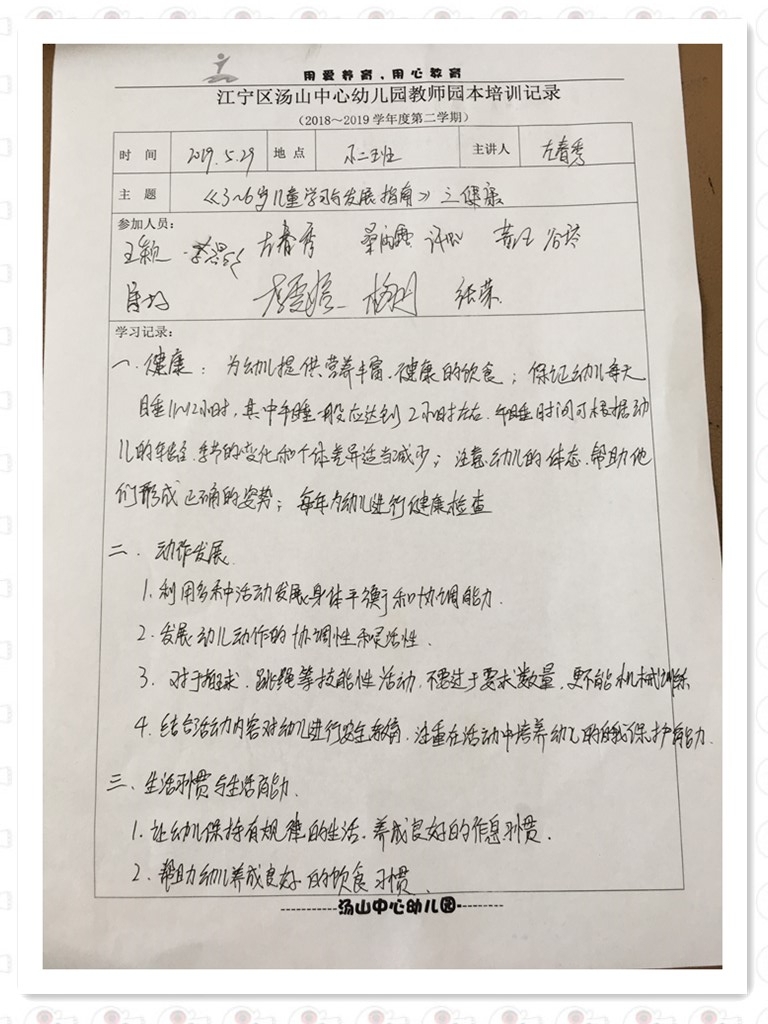 用爱养育，用心教育
江宁区汤山中心幼儿园教师园本培训记录
（2018～2019学年度第二学期）
时 间 2019.5.29 地 点 小二班 主讲人 左春秀
主 题 《3~6岁儿童学习与发展指南》之健康
参加人员：
王颖 左春秀
杨 张荣
学习记录：
一、健康：为幼儿提供营养丰富、健康的饮食；保证幼儿每天
睡11~12小时，其中午睡一般应达到2小时左右．午睡时间可根据幼
儿的年龄、季节的变化和个体差异适当减少；注意幼儿的体态，帮助他
们形成正确的姿势；每年为幼儿进行健康检查
二、动作发展．
1.利用多种活动发展身体平衡和协调能力．
2.发展幼儿动作的协调性和灵活性．
3.对于拍球、跳绳等技能性活动，不要过于要求数量，更不能机械训练
4.结合活动内容对幼儿进行安全教育，注重在活动中培养幼儿的自我保护能力．
三、生活习惯与生活能力．
1.让幼儿保持有规律的生活，养成良好的作息习惯．
2.帮助幼儿养成良好的饮食习惯．
汤山中心幼儿园